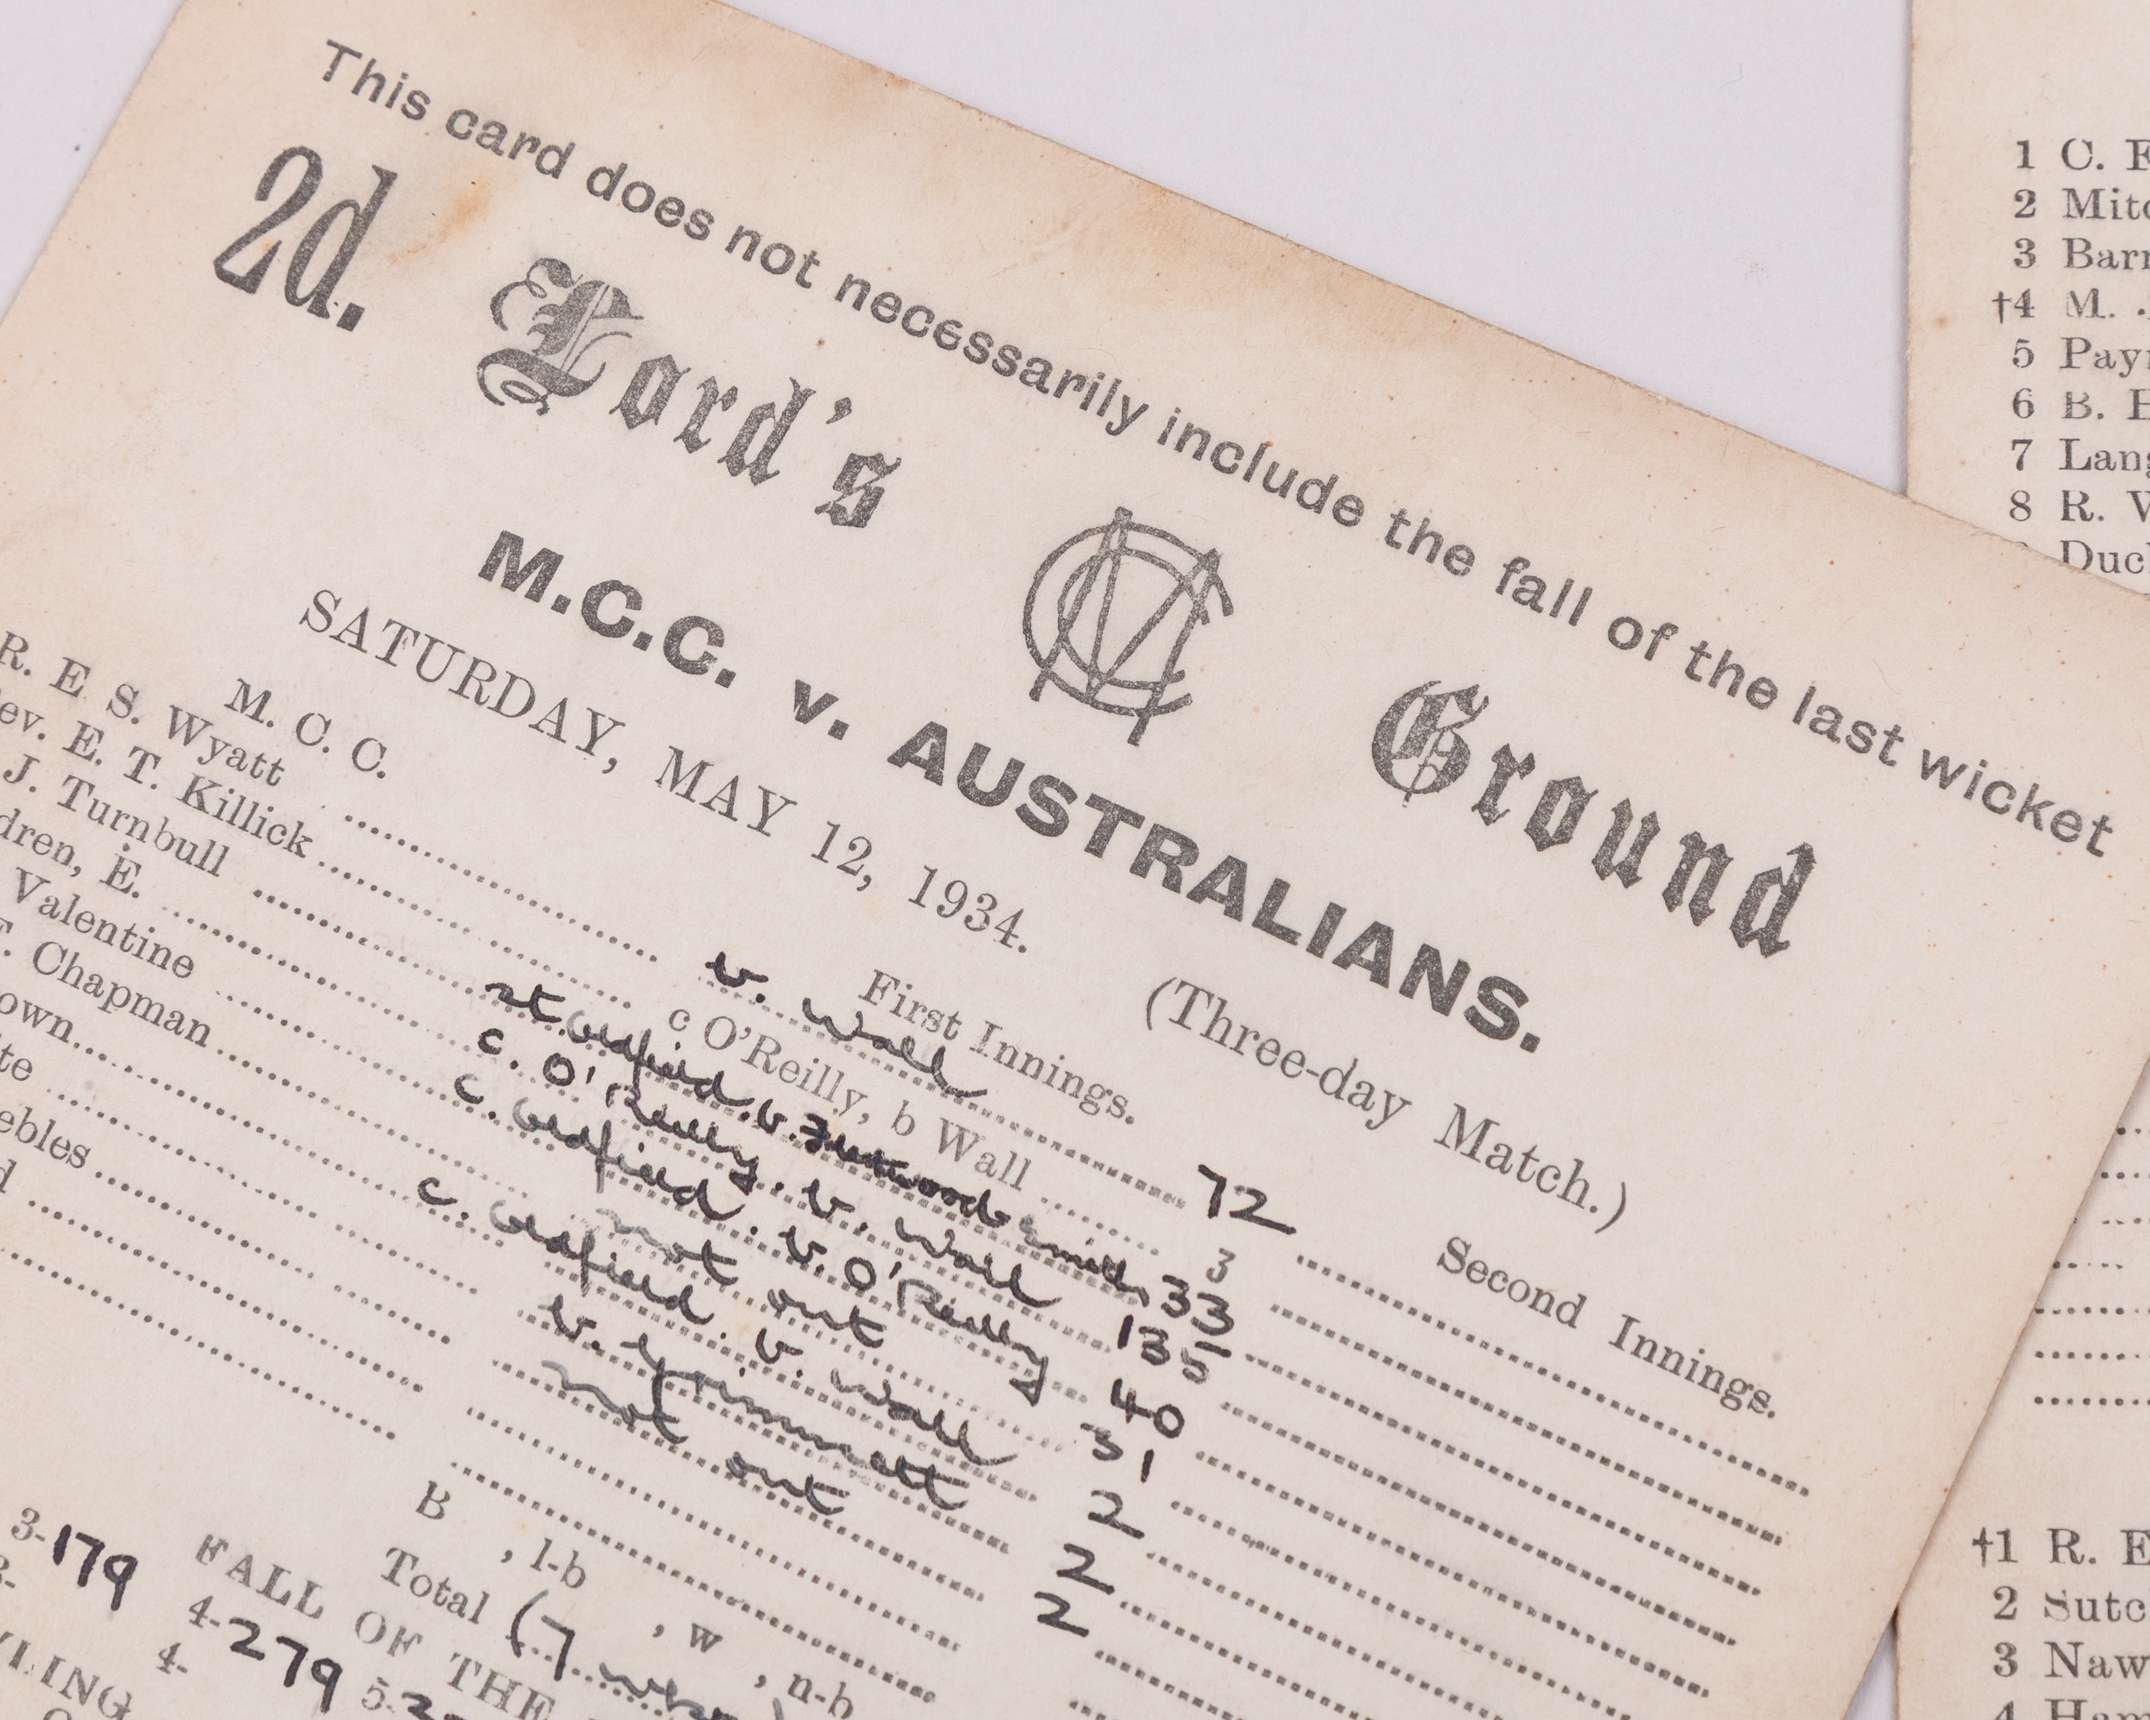 This card does not necessarily include the fall of the last wicket
2d.
Lord's MCC Ground
M.C.C. v. AUSTRALIANS.
SATURDAY, MAY 12, 1934. (Three-day Match.)
M. C. C. First Innings. Second Innings.
R. E S. Wyatt b. Wall 72
ev. E. T. Killick c O'Reilly, b Wall 3
J. Turnbull st Oldfield. b. Fleetwood Smith 33
dren, E. c. O'Reilly. b. Wall 135
Valentine c. Oldfield. b. O'Reilly 40
F. Chapman not out 51
own c. Oldfield. b. Wall 2
te b. Grimmett 2
ebles not out 2
d
B , l-b , w , n-b
Total (7
FALL OF THE
3-179 4-279 5-3
4-
LING
1 C. F
2 Mitc
3 Barn
†4 M.
5 Payn
6 B. H
7 Lang
8 R. W
Duck
†1 R. E
2 Sutc
3 Naw
4 Ham